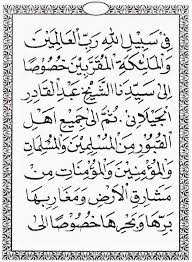 فِيْ سَبِيْلِ اللهِ رَبِّ الْعَالَمِيْنَ
وَالْمَلَائِكَةِ الْمُقَرَّبِيْنَ خُصُوْصًا
اِلَى سَيِّدِنَا الشَّيْخِ عَبْدِ الْقَادِرِ
الْجَيْلَانِي. ثُمَّ اِلَى جَمِيْعِ اَهْلِ
الْقُبُوْرِ مِنَ الْمُسْلِمِيْنَ وَالْمُسْلِمَاتِ
وَالْمُؤْمِنِيْنَ وَالْمُؤْمِنَاتِ مِنْ
مَشَارِقِ الْاَرْضِ وَمَغَارِبِهَا
بَرِّهَا وَبَحْرِهَا خُصُوْصًا اِلَى